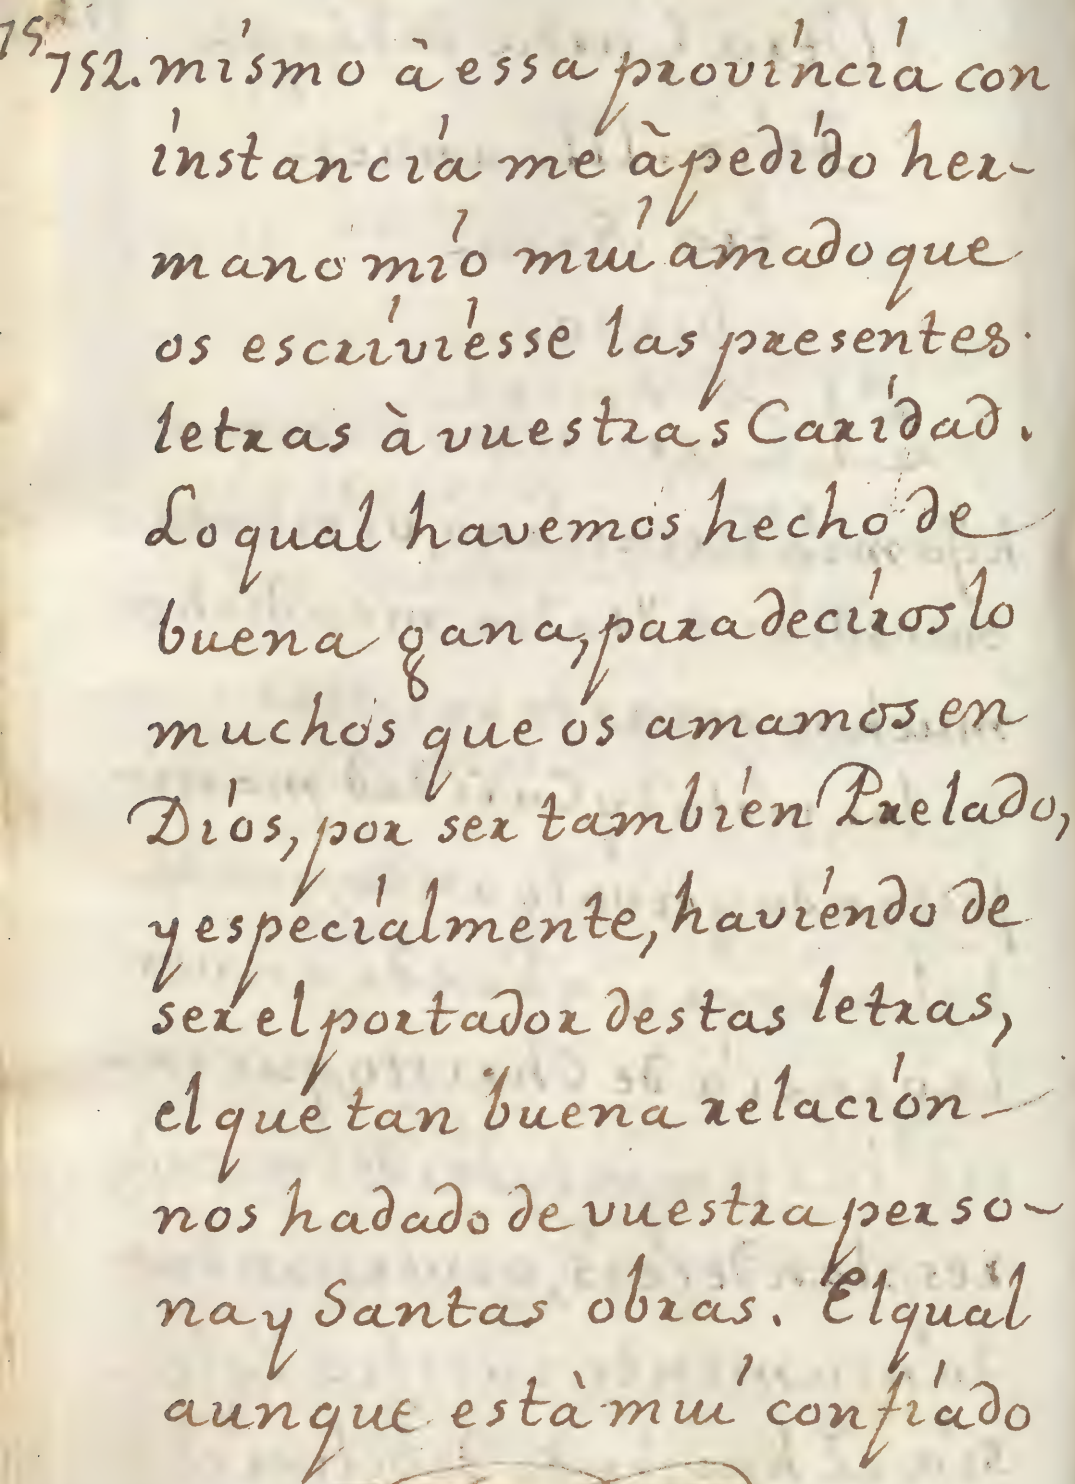 75
752. mismo à essa provincia con
instancia me à pedido her-
mano mio mui amado que
os escriviesse las presentes
letras à vuestras Caridad.
Lo qual havemos hecho de
buena gana, para deciros lo
muchos que os amamos en
Dios, por ser tambien Prelado,
y especialmente, haviendo de
ser el portador destas letras,
el que tan buena relacion
nos ha dado de vuestra perso-
na y Santas obras. El qual
aunque està mui confiado